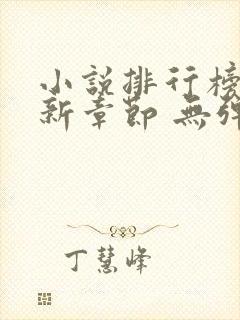 小説排行榜
新章節 無彈
丁慧峰